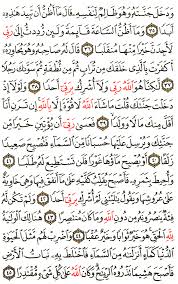 وَدَخَلَ جَنَّتَهُۥ وَهُوَ ظَالِمٌ لِّنَفْسِهِۦ قَالَ مَآ أَظُنُّ أَن تَبِيدَ هَٰذِهِۦٓ
أَبَدًا ٣٥ وَمَآ أَظُنُّ ٱلسَّاعَةَ قَآئِمَةً وَلَئِن رُّدِدتُّ إِلَىٰ رَبِّى
لَأَجِدَنَّ خَيْرًا مِّنْهَا مُنقَلَبًا ٣٦ قَالَ لَهُۥ صَاحِبُهُۥ وَهُوَ يُحَاوِرُهُۥٓ
أَكَفَرْتَ بِٱلَّذِى خَلَقَكَ مِن تُرَابٍ ثُمَّ مِن نُّطْفَةٍ ثُمَّ سَوَّىٰكَ رَجُلًا
٣٧ لَّٰكِنَّا۠ هُوَ ٱللَّهُ رَبِّى وَلَآ أُشْرِكُ بِرَبِّىٓ أَحَدًا ٣٨ وَلَوْلَآ إِذْ دَخَلْتَ
جَنَّتَكَ قُلْتَ مَا شَآءَ ٱللَّهُ لَا قُوَّةَ إِلَّا بِٱللَّهِ إِن تَرَنِ أَنَا۠ أَقَلَّ
مِنكَ مَالًا وَوَلَدًا ٣٩ فَعَسَىٰ رَبِّىٓ أَن يُؤْتِيَنِ خَيْرًا مِّن
جَنَّتِكَ وَيُرْسِلَ عَلَيْهَا حُسْبَانًا مِّنَ ٱلسَّمَآءِ فَتُصْبِحَ صَعِيدًا
زَلَقًا ٤٠ أَوْ يُصْبِحَ مَآؤُهَا غَوْرًا فَلَن تَسْتَطِيعَ لَهُۥ طَلَبًا ٤١
وَأُحِيطَ بِثَمَرِهِۦ فَأَصْبَحَ يُقَلِّبُ كَفَّيْهِ عَلَىٰ مَآ أَنفَقَ فِيهَا وَهِىَ
خَاوِيَةٌ عَلَىٰ عُرُوشِهَا وَيَقُولُ يَٰلَيْتَنِى لَمْ أُشْرِكْ بِرَبِّىٓ أَحَدًا ٤٢ وَلَمْ تَكُن لَّهُۥ
فِئَةٌ يَنصُرُونَهُۥ مِن دُونِ ٱللَّهِ وَمَا كَانَ مُنتَصِرًا ٤٣ هُنَالِكَ ٱلْوَلَٰيَةُ لِلَّهِ
ٱلْحَقِّ هُوَ خَيْرٌ ثَوَابًا وَخَيْرٌ عُقْبًا ٤٤ وَٱضْرِبْ لَهُم مَّثَلَ ٱلْحَيَوٰةِ
ٱلدُّنْيَا كَمَآءٍ أَنزَلْنَٰهُ مِنَ ٱلسَّمَآءِ فَٱخْتَلَطَ بِهِۦ نَبَاتُ ٱلْأَرْضِ
فَأَصْبَحَ هَشِيمًا تَذْرُوهُ ٱلرِّيَٰحُ وَكَانَ ٱللَّهُ عَلَىٰ كُلِّ شَىْءٍ مُّقْتَدِرًا ٤٥